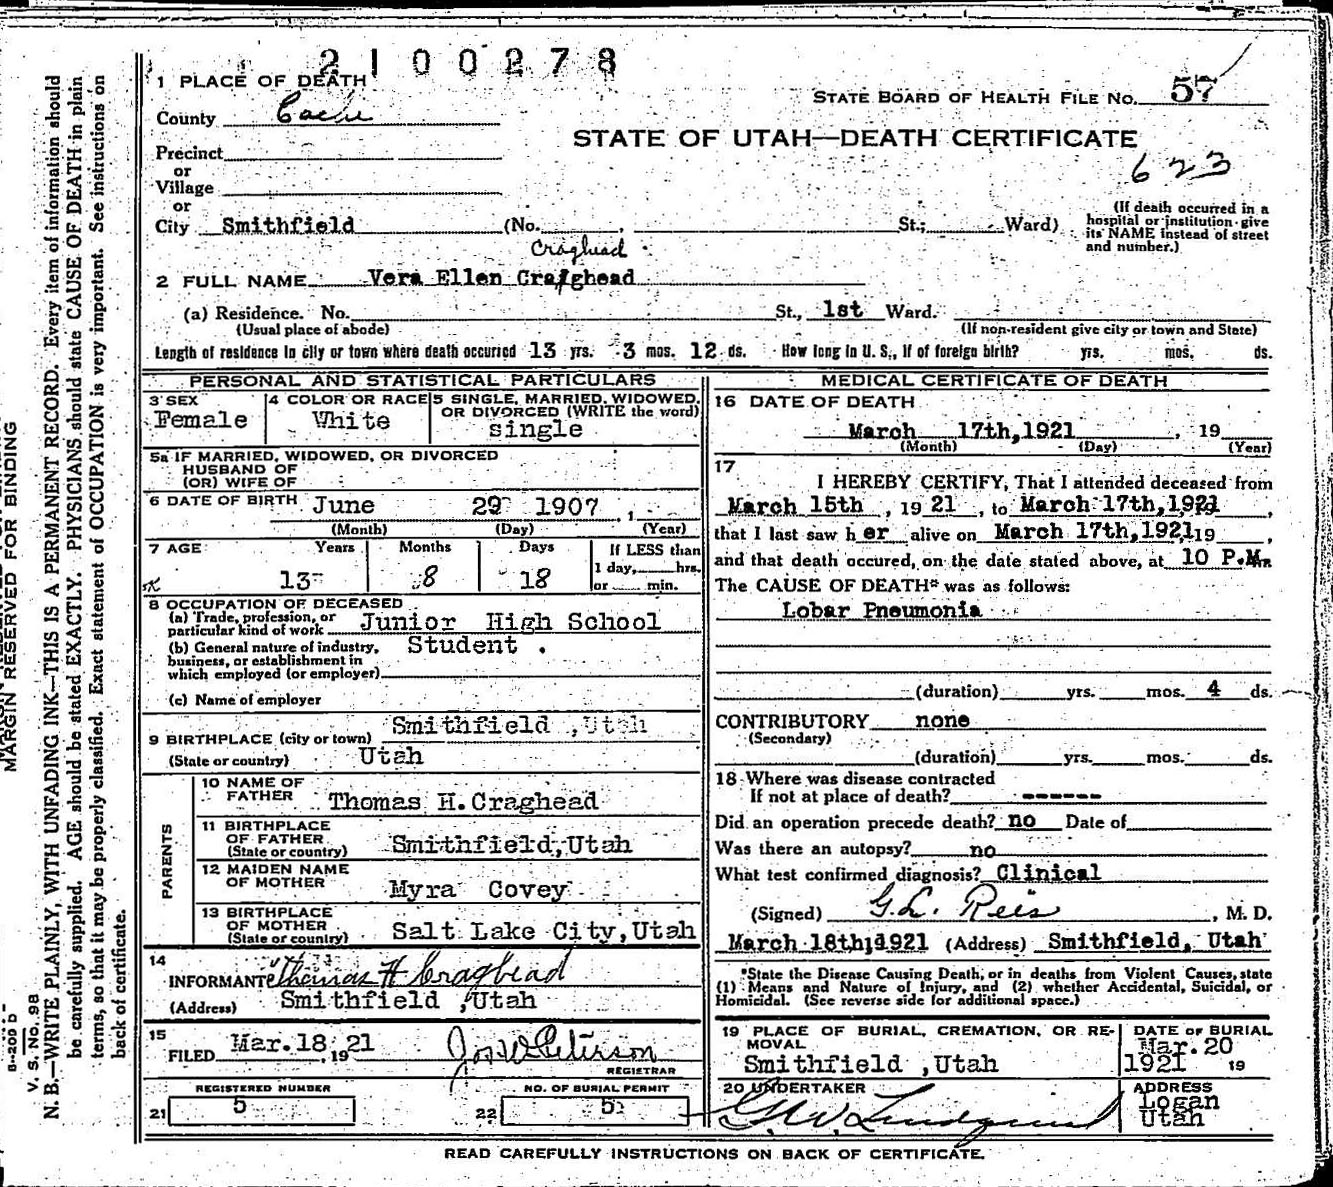 2100278
1 PLACE OF DEATH
County Cache
STATE BOARD OF HEALTH FILE No. 57
STATE OF UTAH—DEATH CERTIFICATE
623
Precinct
or
Village
or
City Smithfield (No. , St.; Ward)
(If death occurred in a
hospital or institution give
its NAME instead of street
and number.)
Craghead
2 FULL NAME Vera Ellen Craighead
(a) Residence. No. St., 1st Ward.
(Usual place of abode) (If non-resident give city or town and State)
Length of residence in city or town where death occuried 13 yrs. 3 mos. 12 ds. How long in U. S., if of foreign birth? yrs. mos. ds.
PERSONAL AND STATISTICAL PARTICULARS
3 SEX
Female
4 COLOR OR RACE
White
5 SINGLE, MARRIED, WIDOWED,
OR DIVORCED (WRITE the word)
single
5a IF MARRIED, WIDOWED, OR DIVORCED
HUSBAND OF
(OR) WIFE OF
6 DATE OF BIRTH June 29 1907 , 1
(Month) (Day) (Year)
7 AGE Years Months Days
13 8 18
If LESS than
1 day, hrs.
or min.
8 OCCUPATION OF DECEASED
(a) Trade, profession, or
particular kind of work Junior High School
(b) General nature of industry, Student .
business, or establishment in
which employed (or employer)
(c) Name of employer
Smithfield ,Utah
9 BIRTHPLACE (city or town)
(State or country) Utah
PARENTS
10 NAME OF
FATHER Thomas H.Craghead
11 BIRTHPLACE
OF FATHER
(State or country) Smithfield,Utah
12 MAIDEN NAME
OF MOTHER Myra Covey
13 BIRTHPLACE
OF MOTHER
(State or country) Salt Lake City,Utah
14
INFORMANT Thomas H Craghead
(Address) Smithfield ,Utah
15
FILED Mar.18 , 19 21 Jos W Peterson
REGISTRAR
REGISTERED NUMBER
21 5
NO. OF BURIAL PERMIT
22 5
MEDICAL CERTIFICATE OF DEATH
16 DATE OF DEATH
March 17th,1921 , 19
(Month) (Day) (Year)
17
I HEREBY CERTIFY, That I attended deceased from
March 15th , 19 21 , to March 17th,1921 ,
that I last saw h er alive on March 17th,1921 19 ,
and that death occured, on the date stated above, at 10 P.M.m
The CAUSE OF DEATH* was as follows:
Lobar Pneumonia
(duration) yrs. mos. 4 ds.
CONTRIBUTORY none
(Secondary)
(duration) yrs. mos. ds.
18 Where was disease contracted
If not at place of death? ------
Did an operation precede death? no Date of
Was there an autopsy? no
What test confirmed diagnosis? Clinical
(Signed) G.L. Rees , M. D.
March 18th,1921 (Address) Smithfield, Utah
*State the Disease Causing Death, or in deaths from Violent Causes, state
(1) Means and Nature of Injury, and (2) whether Accidental, Suicidal, or
Homicidal. (See reverse side for additional space.)
19 PLACE OF BURIAL, CREMATION, OR RE-
MOVAL
Smithfield ,Utah
DATE OF BURIAL
Mar.20
1921 19
20 UNDERTAKER
G.W. Lindquist
ADDRESS
Logan
Utah
READ CAREFULLY INSTRUCTIONS ON BACK OF CERTIFICATE.
MARGIN RESERVED FOR BINDING
B-209 D
V. S. No. 98
N. B.—WRITE PLAINLY, WITH UNFADING INK—THIS IS A PERMANENT RECORD. Every item of information should
be carefully supplied. AGE should be stated EXACTLY. PHYSICIANS should state CAUSE OF DEATH in plain
terms, so that it may be properly classified. Exact statement of OCCUPATION is very important. See instructions on
back of certificate.